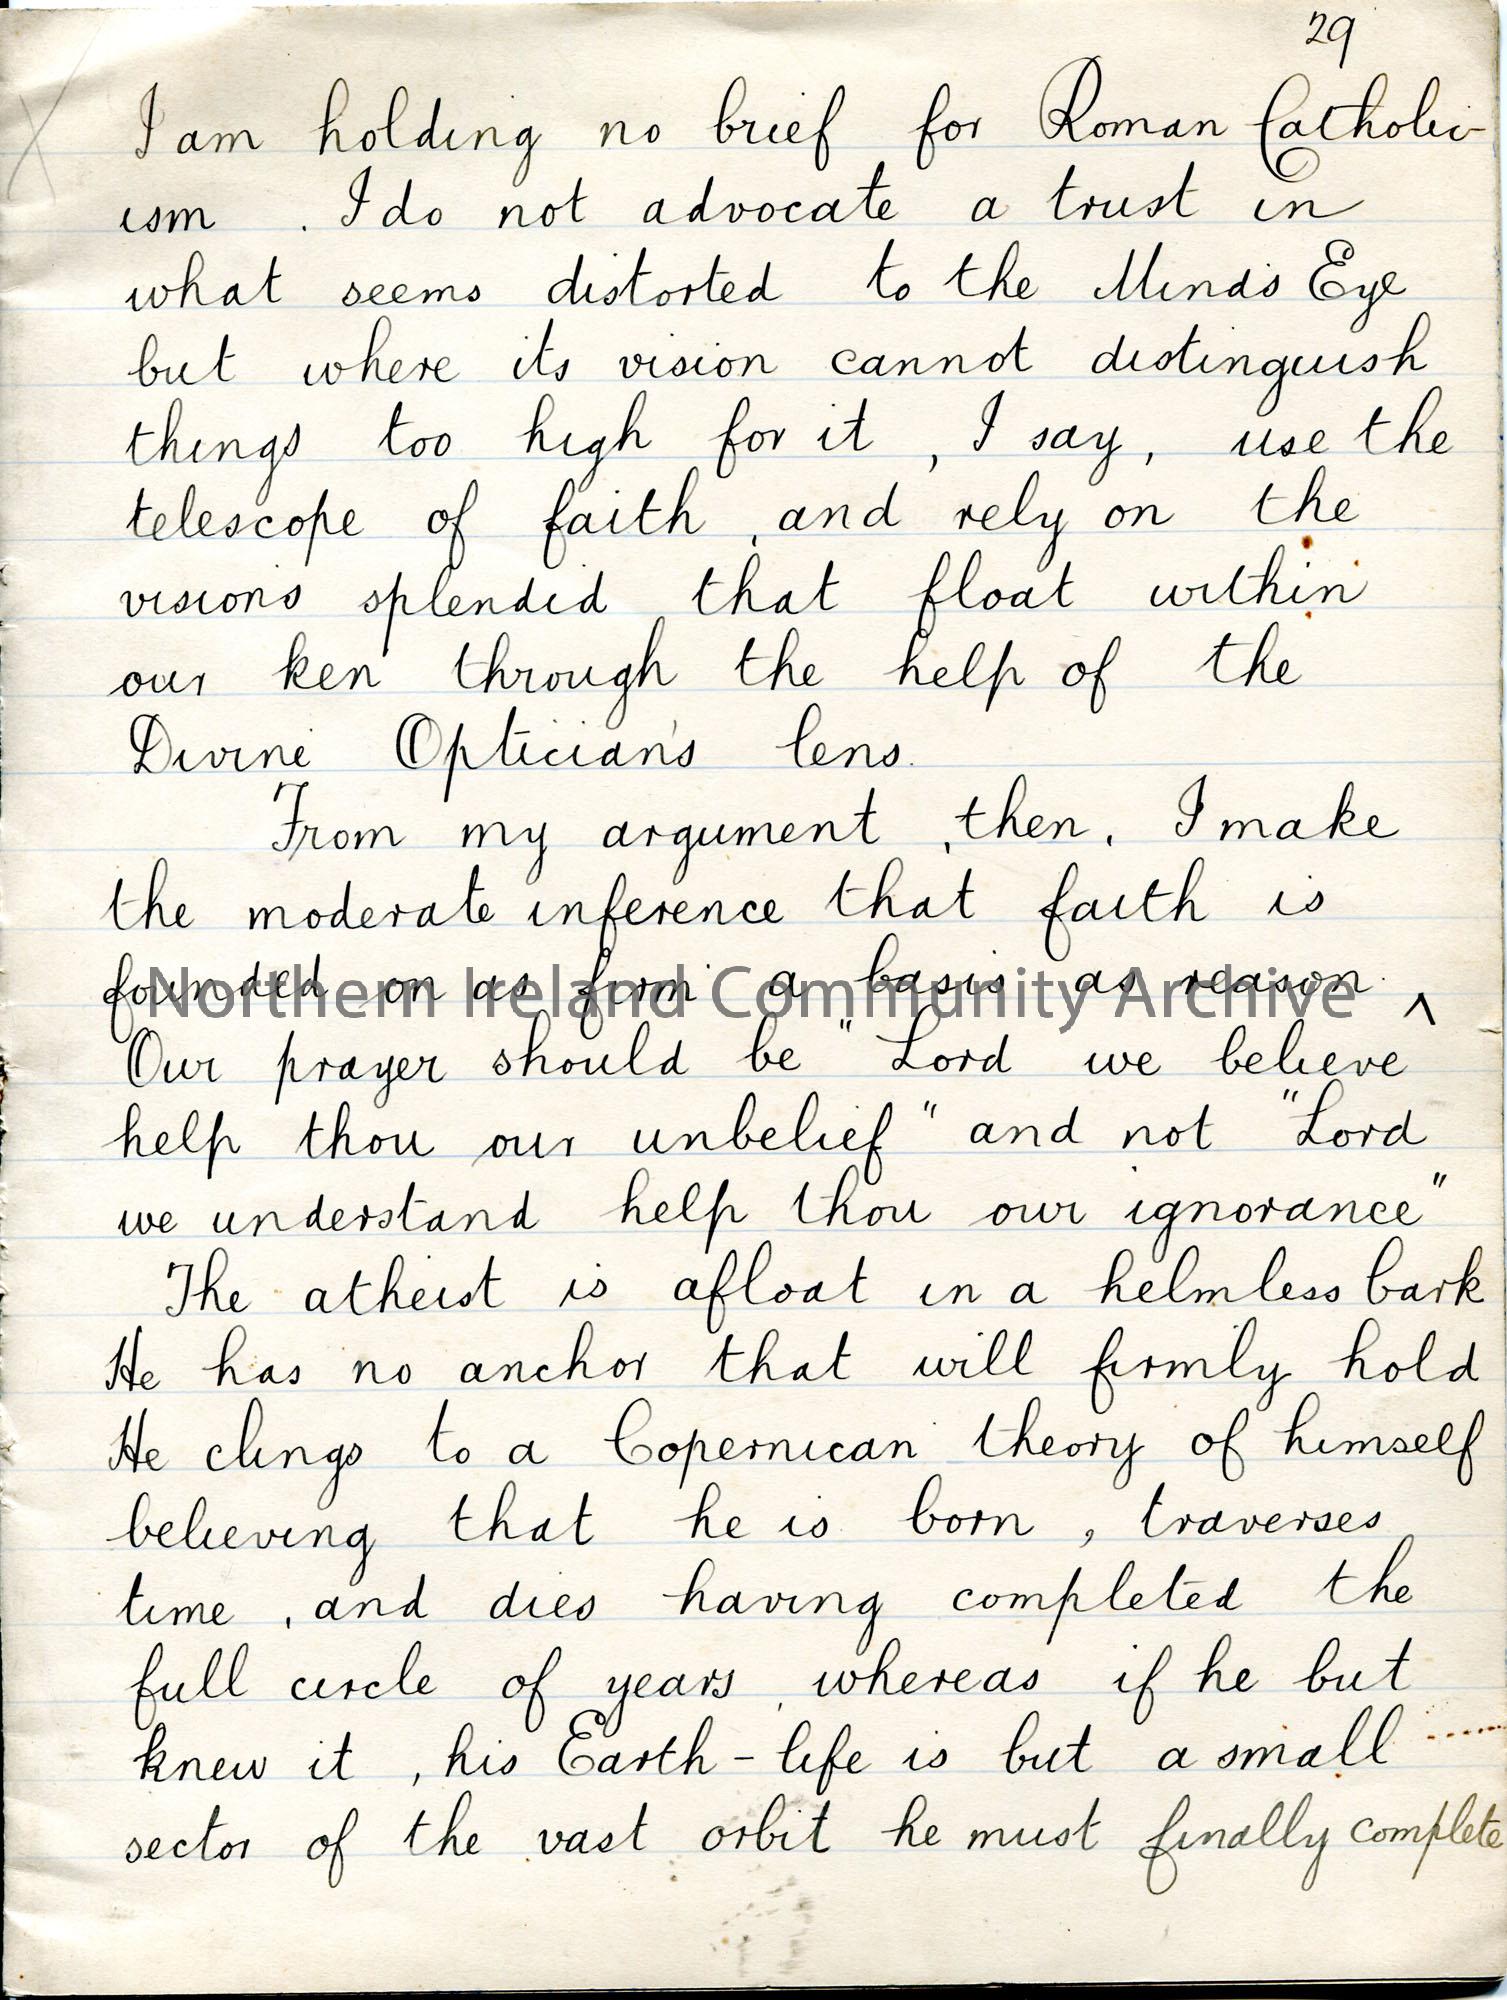 29
I am holding no brief for Roman Catholic-
ism . I do not advocate a trust in
what seems distorted to the Mind's Eye
but where its vision cannot distinguish
things too high for it , I say , use the
telescope of faith , and rely on the
visions splendid that float within
our ken through the help of the
Divine Optician's lens.
From my argument , then , I make
the moderate inference that faith is
founded on as firm a basis as reason.
Northern Ireland Community Archive
^
Our prayer should be "Lord we believe
help thou our unbelief" and not "Lord
we understand help thou our ignorance"
The atheist is afloat in a helmless bark
He has no anchor that will firmly hold
He clings to a Copernican theory of himself
believing that he is born , traverses
time , and dies having completed the
full circle of years , whereas if he but
knew it , his Earth-life is but a small
sector of the vast orbit he must finally complete